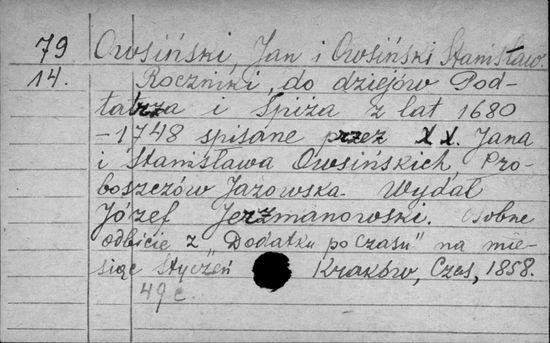 79 Owsiński, Jan i Owsiński Stanisław.
14. Roczniki, do dziejów Pod-
tatrza i Spiża z lat 1680
-1748 spisane przez X X. Jana
i Stanisława Owsińskich, Pro-
boszczów Jazowska. Wydał
Józef Jerzmanowski. Osobne
odbicie z "Dodatku po Czasu" na mie-
siąc Styczeń Kraków, Czas, 1858.